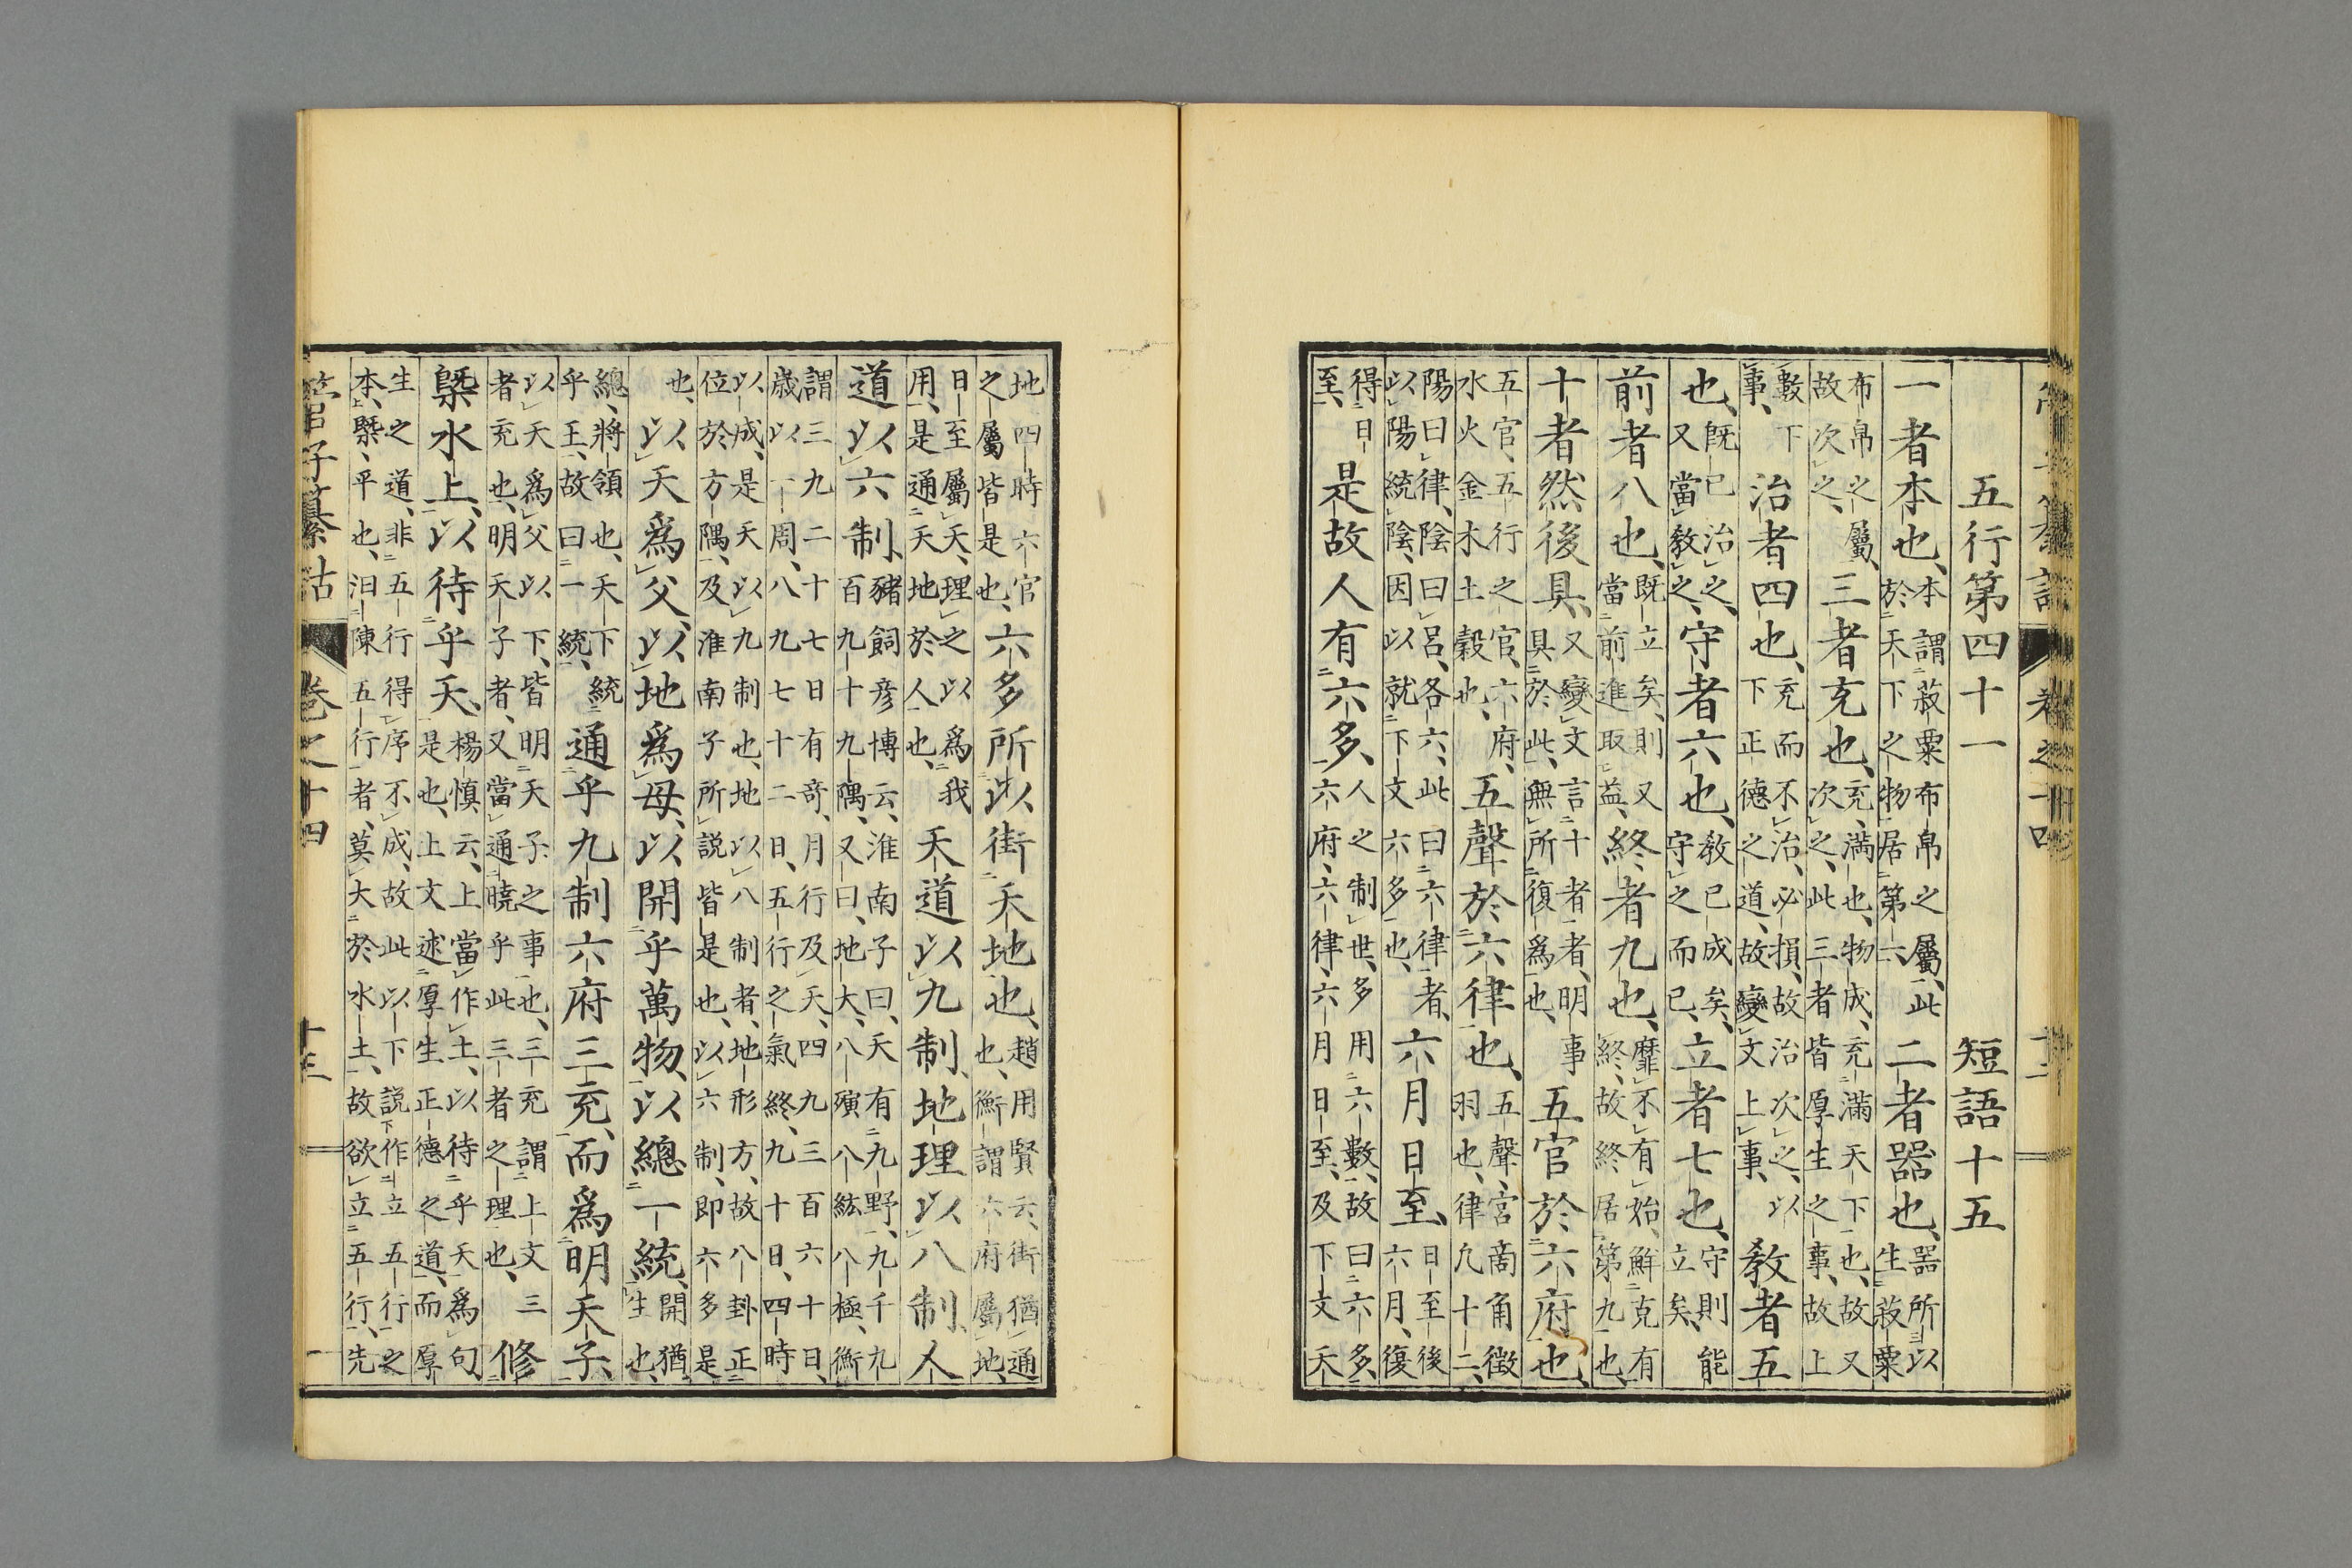 五行第四十一　短語十五
一者本也、本謂菽粟布帛之屬、此於天下之物居第六、二者器也、器所以生菽粟
布帛之屬、故次之、三者充也、充、滿也、物成、充滿天下也、故又次之、此三者皆厚生之事、故上
數下事、治者四也、充而不治、必損、故治次之、以下正德之道、故變文上事、教者五
也、既已治之、又當教之、守者六也、教已成矣、守之而已、立者七也、守則能立矣、
前者八也、既立矣、則又當前進取益、終者九也、靡不有始、鮮克有終、故終居第九也、
十者然後具、又變文言十者者、明事具於此、無所復爲也、五官於六府也、
五官、五行之官、六府、水火金木土穀也、五聲於六律也、五聲、宮商角徵羽也、律凡十二、
陽曰律、陰曰呂、各六、此曰六律者、以陽統陰、因以就下文六多也、六月日至、日至後六月、復
得日至、是故人有六多、人之制世、多用六數、故曰六多、六府、六律、六月日至、及下文天
地四時六官之屬皆是也、六多所以街天地也、趙用賢云、街猶通也、衡謂六府屬地、
日至屬天、理之以爲我用、是通天地於人也、天道以九制、地理以八制、人
道以六制、豬飼彥博云、淮南子曰、天有九野、九千九百九十九隅、又曰、地大、八殥八紘八極、衡
謂三九二十七日有奇、月行及天、四九三百六十日、歲以一周、八九七十二日、五行之氣終、九十日、四時
以成、是天以九制也、地以八制者、地形方、故八卦正位於方隅、及淮南子所說皆是也、以六制、即六多是
也、以天爲父、以地爲母、以開乎萬物、以總一統、開猶生也、
總、將領也、天下統乎王、故曰一統、通乎九制六府三充、而爲明天子、
以天爲父以下、皆明天子之事也、三充謂上文三者充也、明天子者、又當通曉乎此三者之理也、修
槩水上、以待乎天、楊慎云、上當作土、以待乎天爲句、是也、上文述厚生正德之道、而厚
生之道、非五行得序不成、故此以下說作立五行之本、槩、平也、汨陳五行者、莫大於水土、故欲立五行、先
管子纂詁　卷之十四　十三